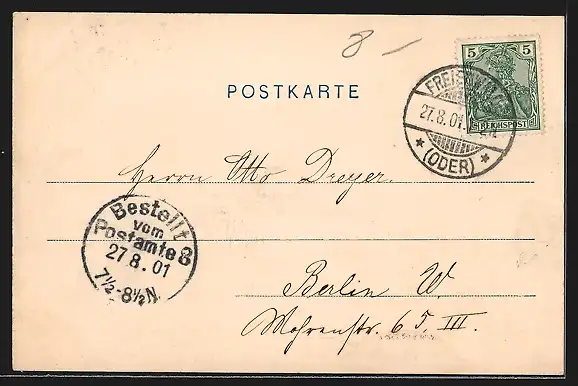 8 -
POSTKARTE
5 5
REICHSPOST
FREIENWALDE
27.8.01.
* (ODER) *
Herrn Otto Dreyer.
Bestellt
vom
Postamte 8
27 8. 01
7½-8½N.
Berlin W.
Mohrenstr. 65. III.